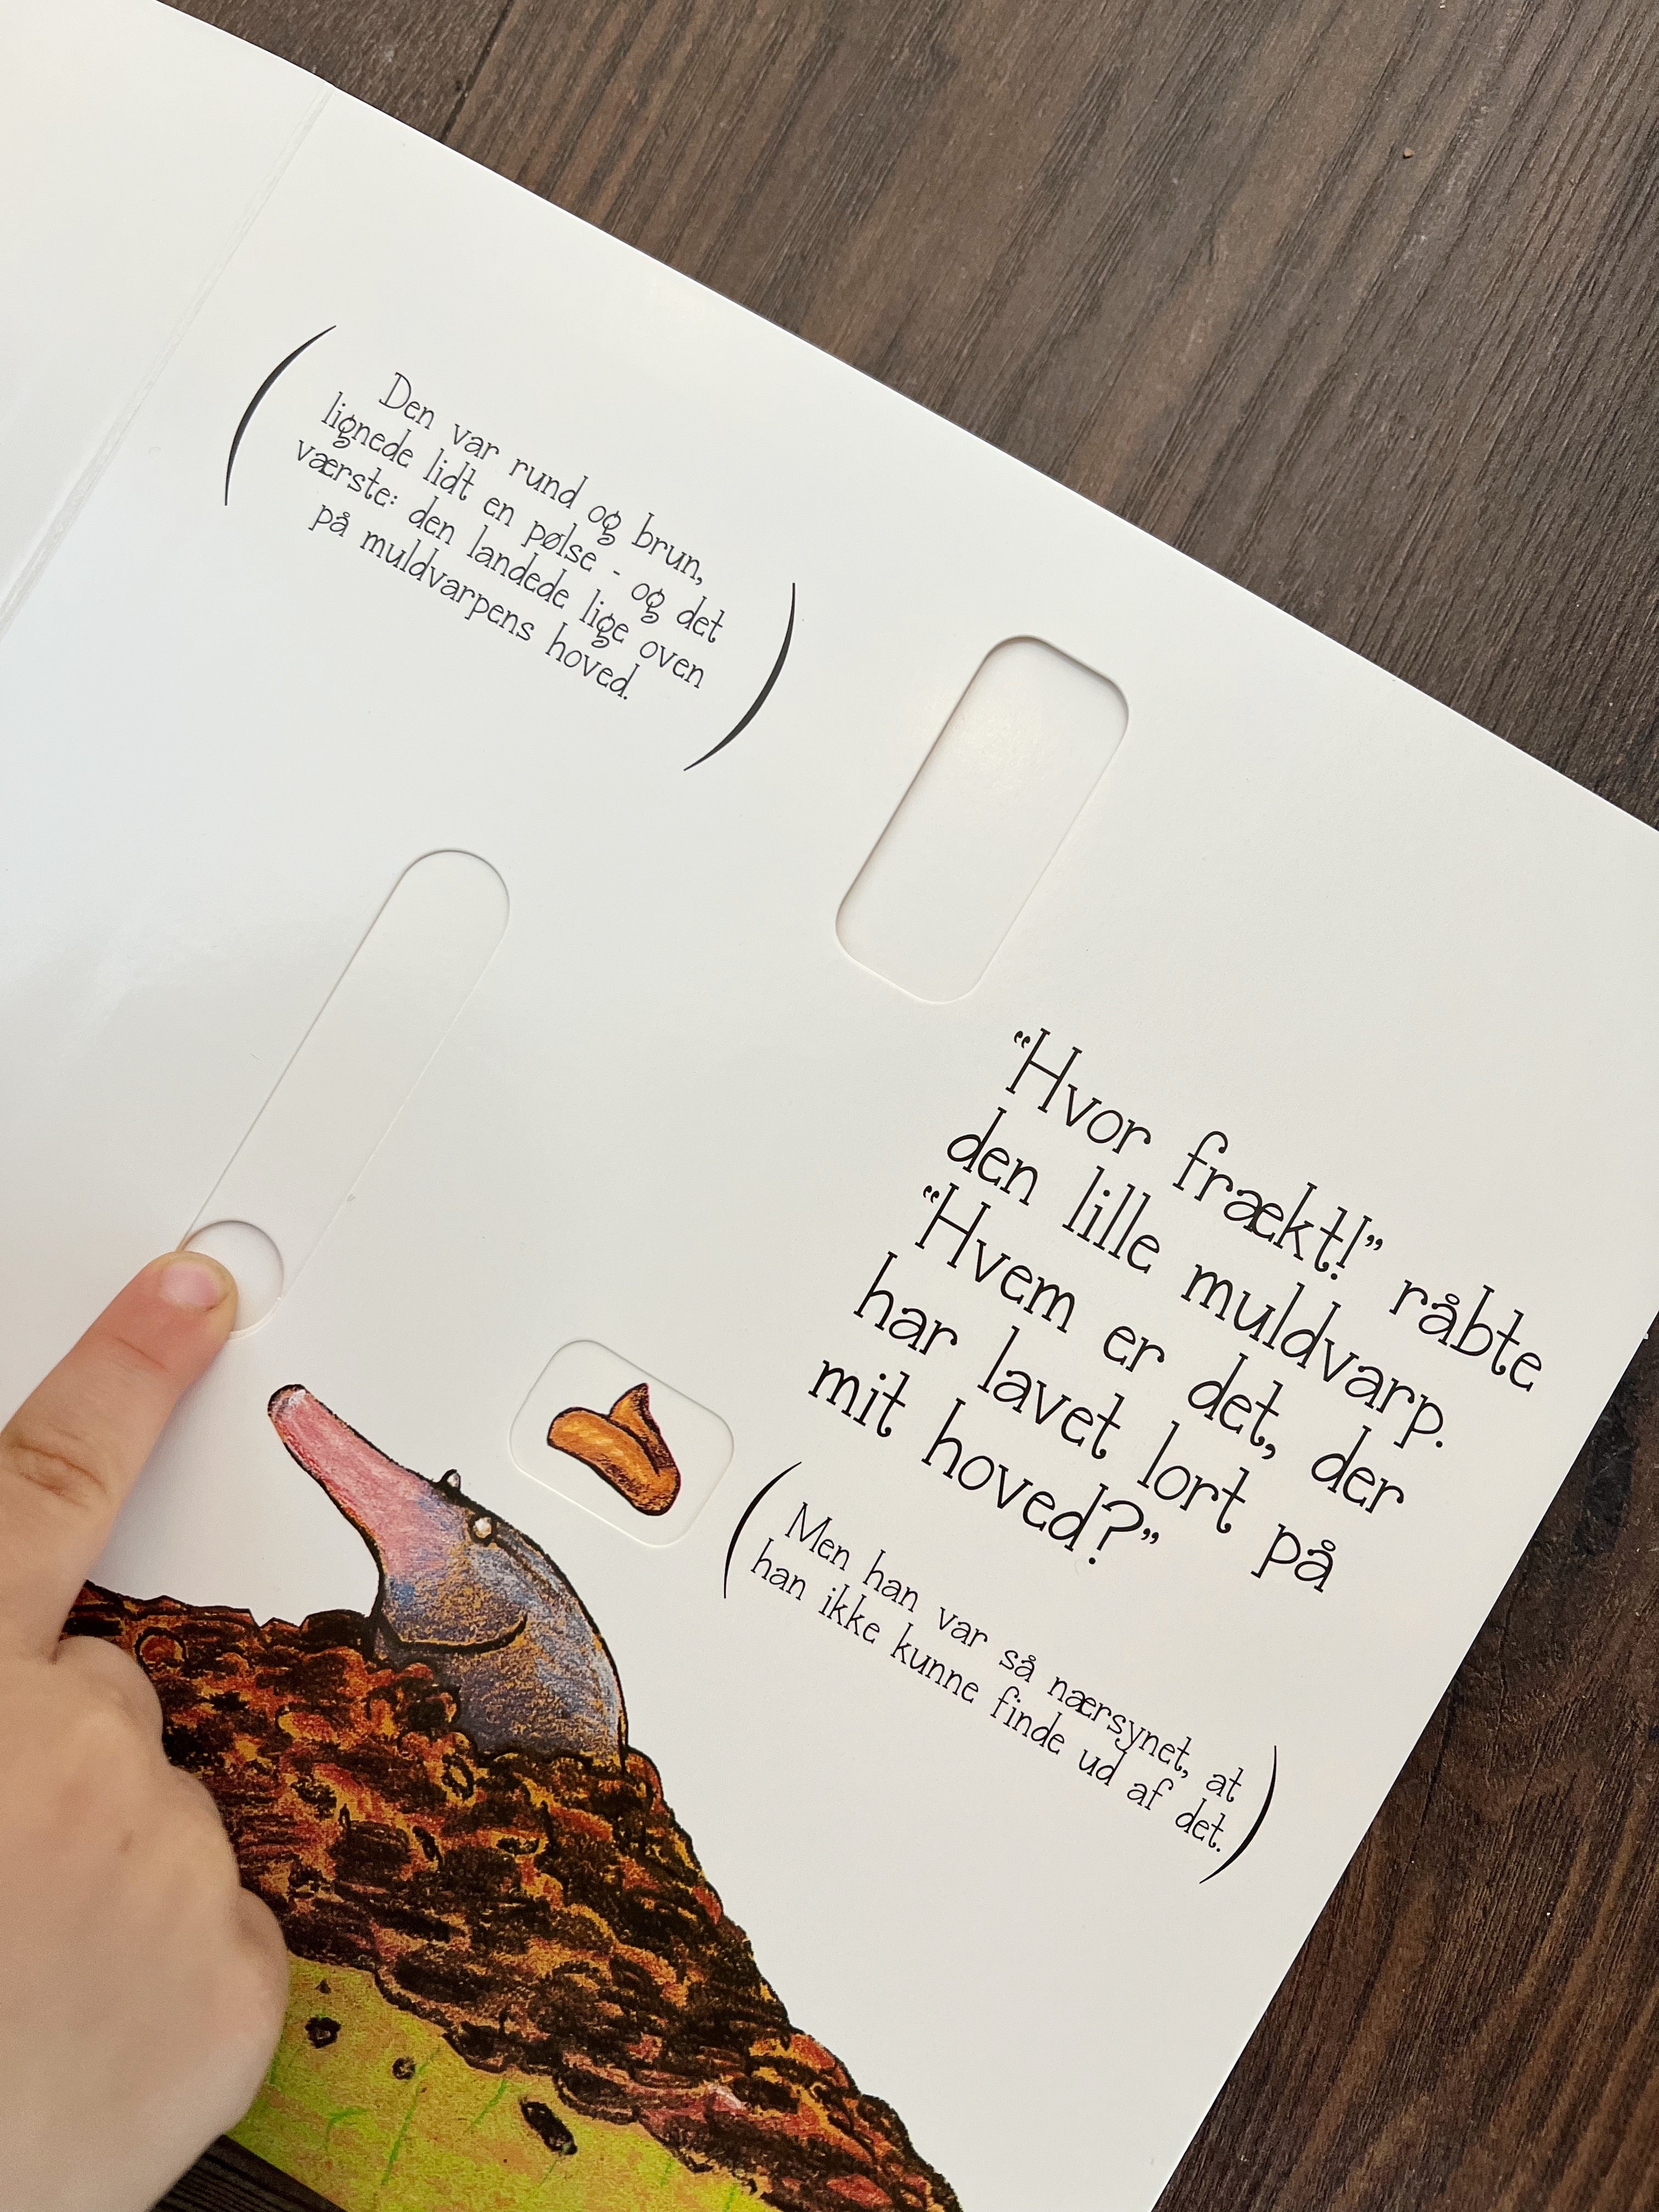 Den var rund og brun,
lignede lidt en pølse - og det
værste: den landede lige oven
på muldvarpens hoved.
“Hvor frækt!” råbte
den lille muldvarp.
“Hvem er det, der
har lavet lort på
mit hoved?”
(Men han var så nærsynet, at
han ikke kunne finde ud af det.)